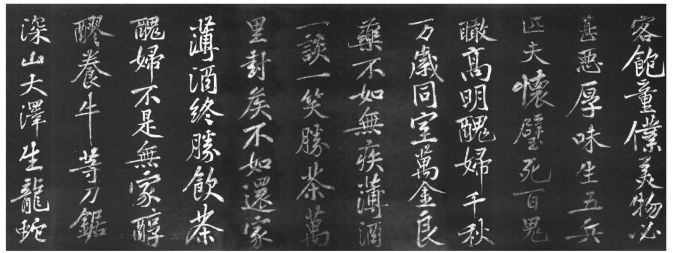 客飽童僕美物必
甚惡厚味生五兵
匹夫懷璧死百鬼
瞰高明醜婦千秋
万歲同室萬金良
藥不如無疾薄酒
一談一笑勝茶萬
里封矦不如還家
薄酒終勝飲茶
醜婦不是無家醇
醪養牛等刀鋸
深山大澤生龍蛇